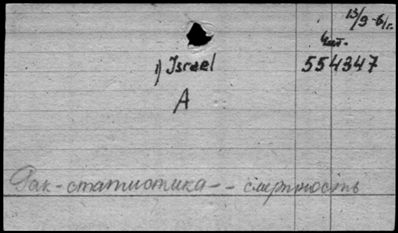 13/9-61г.
чит.
1) Israel 554347
A
Рак-статистика - - смертность